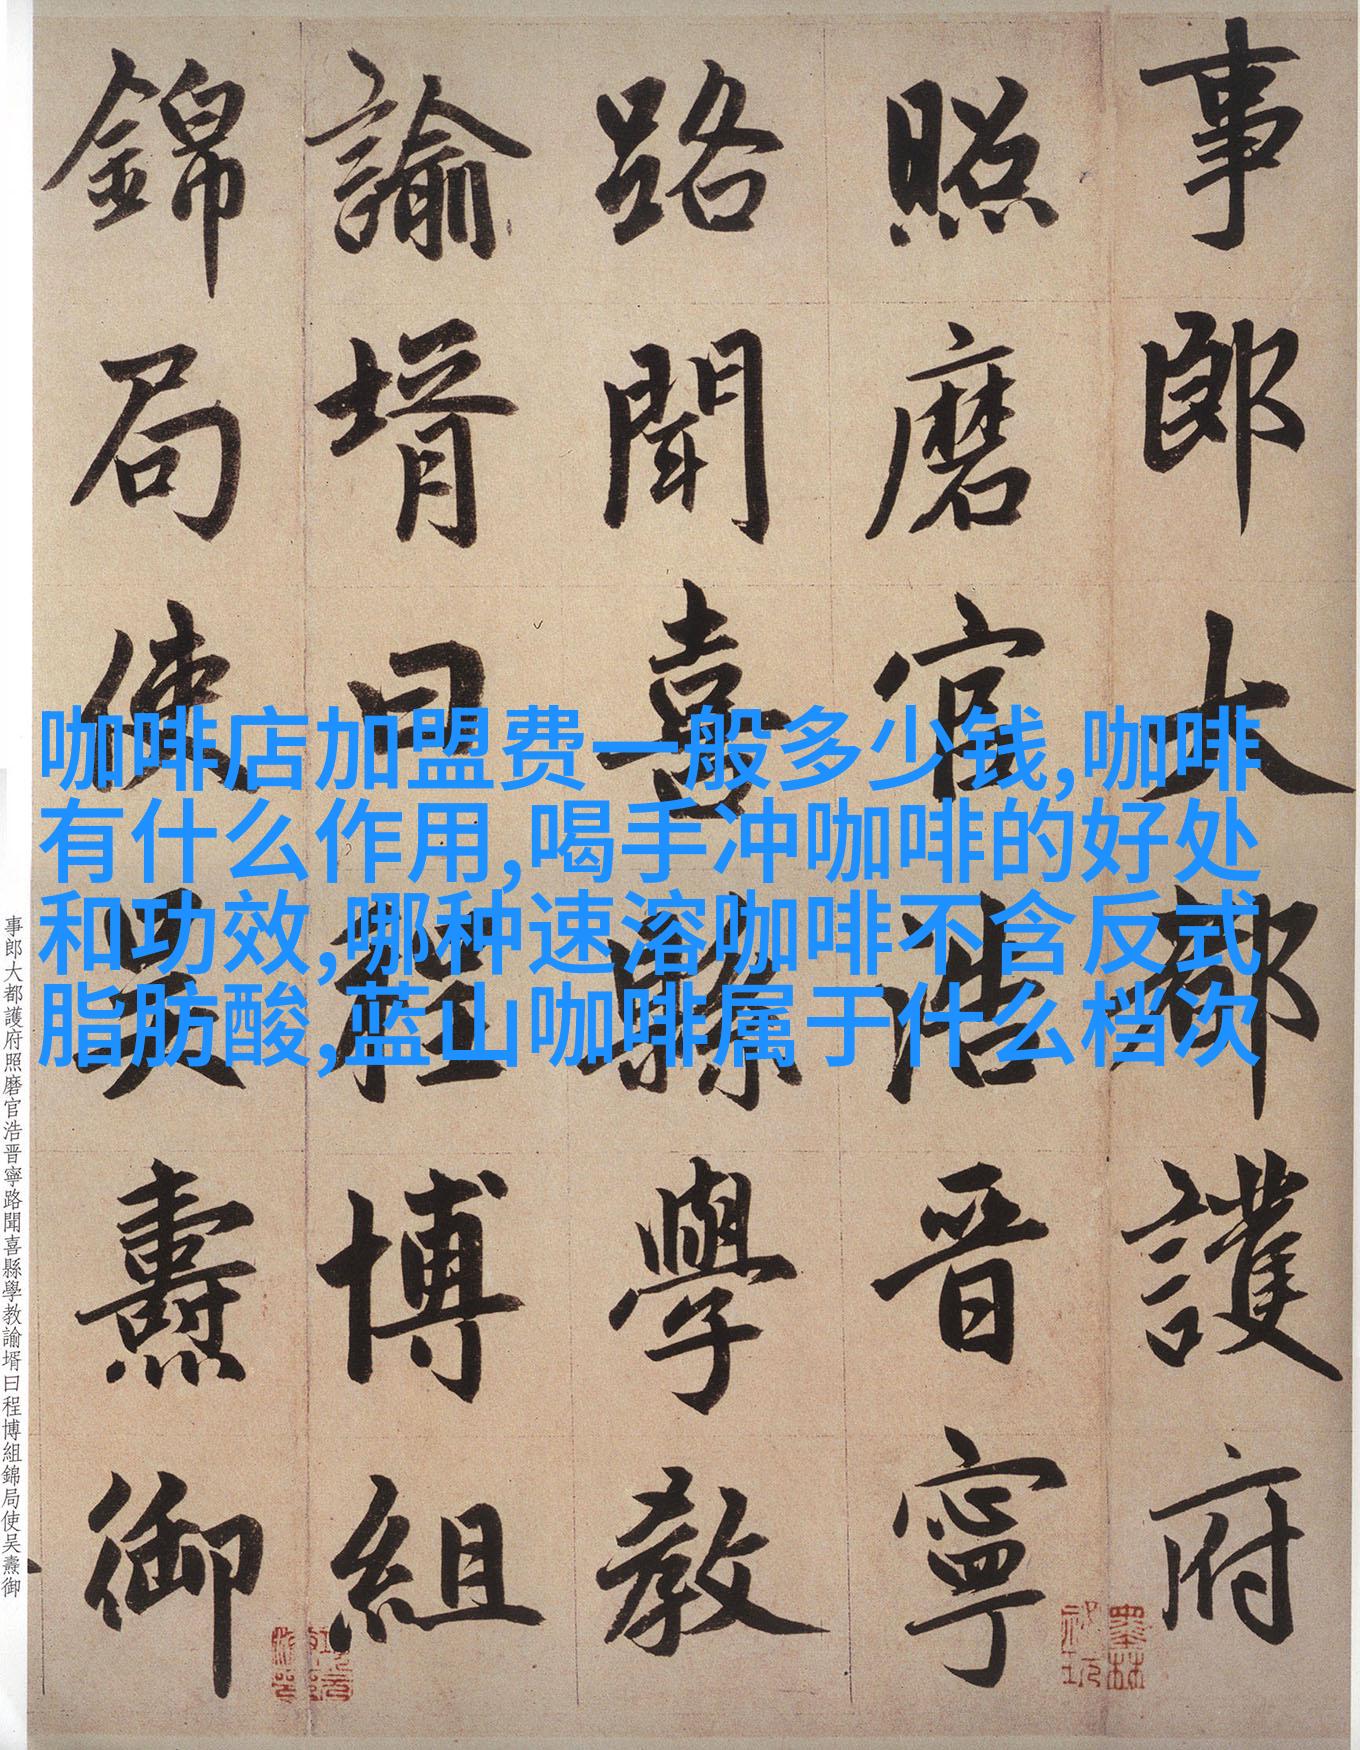 事郎大都護府
照磨官浩晋寧
路聞喜縣學教
諭壻曰程博組
錦局使吴燾御
咖啡店加盟费一般多少钱,咖啡
有什么作用,喝手冲咖啡的好处
和功效,哪种速溶咖啡不含反式
脂肪酸,蓝山咖啡属于什么档次
事郎大都護府照磨官浩晋寧路聞喜縣學教諭壻曰程博組錦局使吴燾御